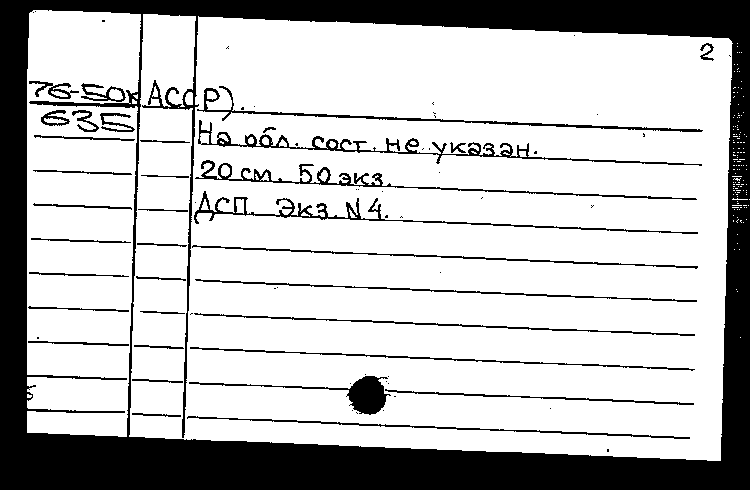 2
76-50к АССР).
635
На обл. сост. не указан.
20 см. 50 экз.
ДСП. Экз. N 4.